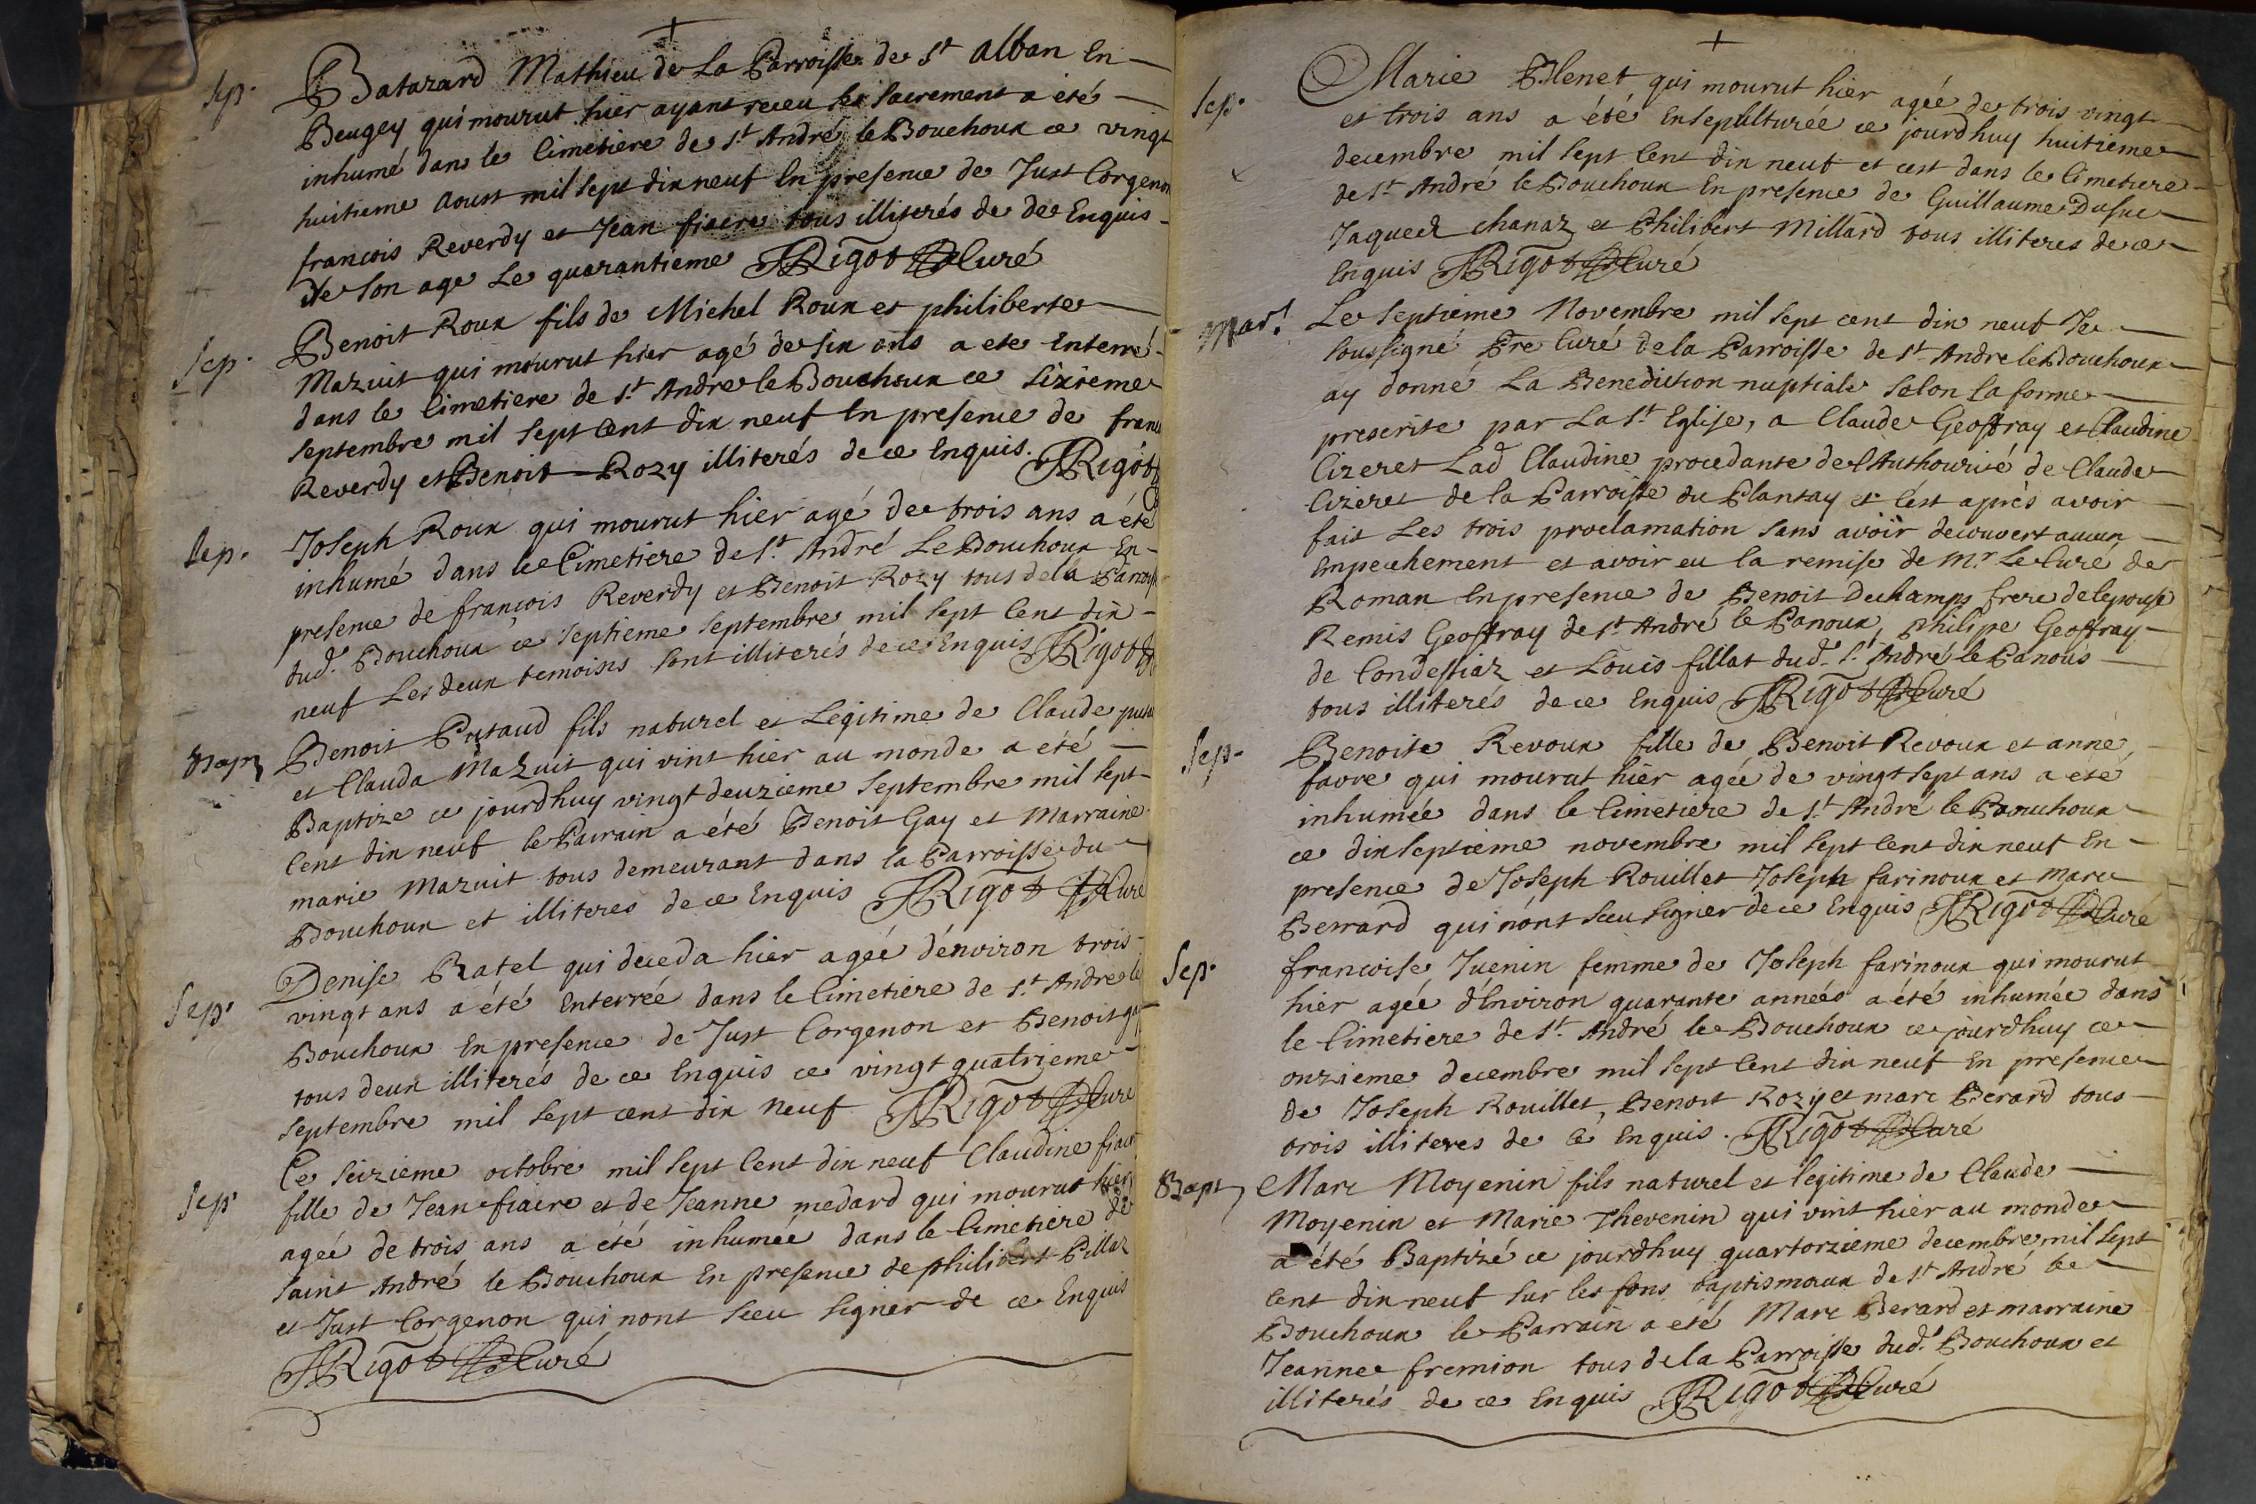 Sep. Batazard Mathieu de La Parroisse de St Alban En
Beugey qui mourut hier ayant receu les sacrement a été
inhumé dans le Cimetiere de St André le Bouchoux ce vingt
huitieme Aoust mil sept dix neuf En presence de Just Corgenon
francois Reverdy et Jean fiacre tous illiterés de de Enquis
de son age Le quarantieme Rigot Curé
Sep. Benoit Roux fils de Michel Roux et philiberte
Mazuit qui mourut hier agé de six ans a ete Enterré
dans le Cimetiere de St Andre le Bouchoux ce Sixieme
Septembre mil sept Cent dix neuf En presence de
Reverdy et Benoit Rozy illiterés de ce Enquis. Rigot
Sep. Joseph Roux qui mourut hier agé de trois ans a été
inhumé dans le Cimetiere de St André Le Bouchoux En
presence de francois Reverdy et Benoit Rozy tous de la Parroisse
dud. Bouchoux ce septieme Septembre mil sept Cent dix
neuf Les deux temoins sont illiterés de ce Enquis Rigot
Bap Benoit Putaud fils naturel et Legitime de Claude
et Clauda Mazuit qui vint hier au monde a été
Baptize ce jourdhuy vingt deuzieme Septembre mil sept
Cent dix neuf le Parrain a été Benoit Gay et Marraine
marie Mazuit tous demeurant dans la Parroisse du
Bouchoux et illiteres de ce Enquis Rigot Curé
Sep. Denise Ratel qui deceda hier agéé dénviron trois
vingt ans a été Enterrée dans le Cimetiere de St Andre le
Bouchoux En presence de Just Corgenon et Benoit gay
tous deux illiterés de ce Enquis ce vingt quatrieme
Septembre mil sept cent dix neuf Rigot Curé
Sep Ce Seizieme octobre mil sept Cent dix neuf Claudine
fille de Jean fiacre et de Jeanne medard qui mourut hier
agéé de trois ans a été inhumée dans le Cimetiere de
Saint André le Bouchoux En presence de philibert Pillaz
et Just Corgenon qui nont sceu signer de ce Enquis
Rigot Curé
Sep. Marie Blenet qui mourut hier agéé de trois vingt
et trois ans a été Ensepulturéé ce jourdhuy huitieme
decembre mil sept Cent dix neuf et cest dans le Cimetiere
de St André le Bouchoux En presence de Guillaume Dufuc
Jaques chanaz et Philibert Millard tous illiteres de ce
Enquis Rigot Curé
Mar. Le Septieme Novembre mil sept cent dix neuf Je
Soussigné Pre Curé de la Parroisse de St Andre le Bouchoux
ay donné La Benediction nuptiale Selon la forme
prescrite par La Ste Eglise, a Claude Geoffray et Claudine
Cizeret Lad Claudine procedante de l'Authourité de Claude
Cizeret de la Parroisse du Plantay et cést aprés avoir
fait Les trois proclamation sans avoir decouvert aucun
Empechement et avoir eu la remise de Mr Le Curé de
Roman En presence de Benoit Dechamps frere de lepouse
Remis Geoffray de St André le Panoux, Philipe Geoffray
de Condessiaz et Louis fillat dud. St André le Panous
tous illiterés de ce Enquis Rigot Curé
Sep. Benoite Revoux fille de Benoit Revoux et anne
favre qui mourut hier agée de vingt sept ans a été
inhumée dans le Cimetiere de St André le Bouchoux
ce dix septieme novembre mil sept Cent dix neuf En
presence de Joseph Rouillet Joseph farinoux et Marc
Berrard qui nont sceu signer de ce Enquis Rigot Curé
Sep. francoise Juenin femme de Joseph farinoux qui mourut
hier agée d'Environ quarante années a été inhumée dans
le Cimetiere de St André le Bouchoux ce jourdhuy ce
onzieme decembre mil sept Cent dix neuf En presence
de Joseph Rouillet, Benoit Rozy et marc Berard tous
trois illiteres de ce Enquis. Rigot Curé
Bapt Marc Moyenin fils naturel et legitime de Claude
Moyenin et Marie Thevenin qui vint hier au monde
a été Baptizé ce jourdhuy quartorzieme decembre mil sept
Cent dix neuf sur les fons baptismaux de St André le
Bouchoux le Parrain a eté Marc Berard et marraine
Jeanne fremion tous de la Parroisse dud. Bouchoux et
illiterés de ce Enquis Rigot Curé